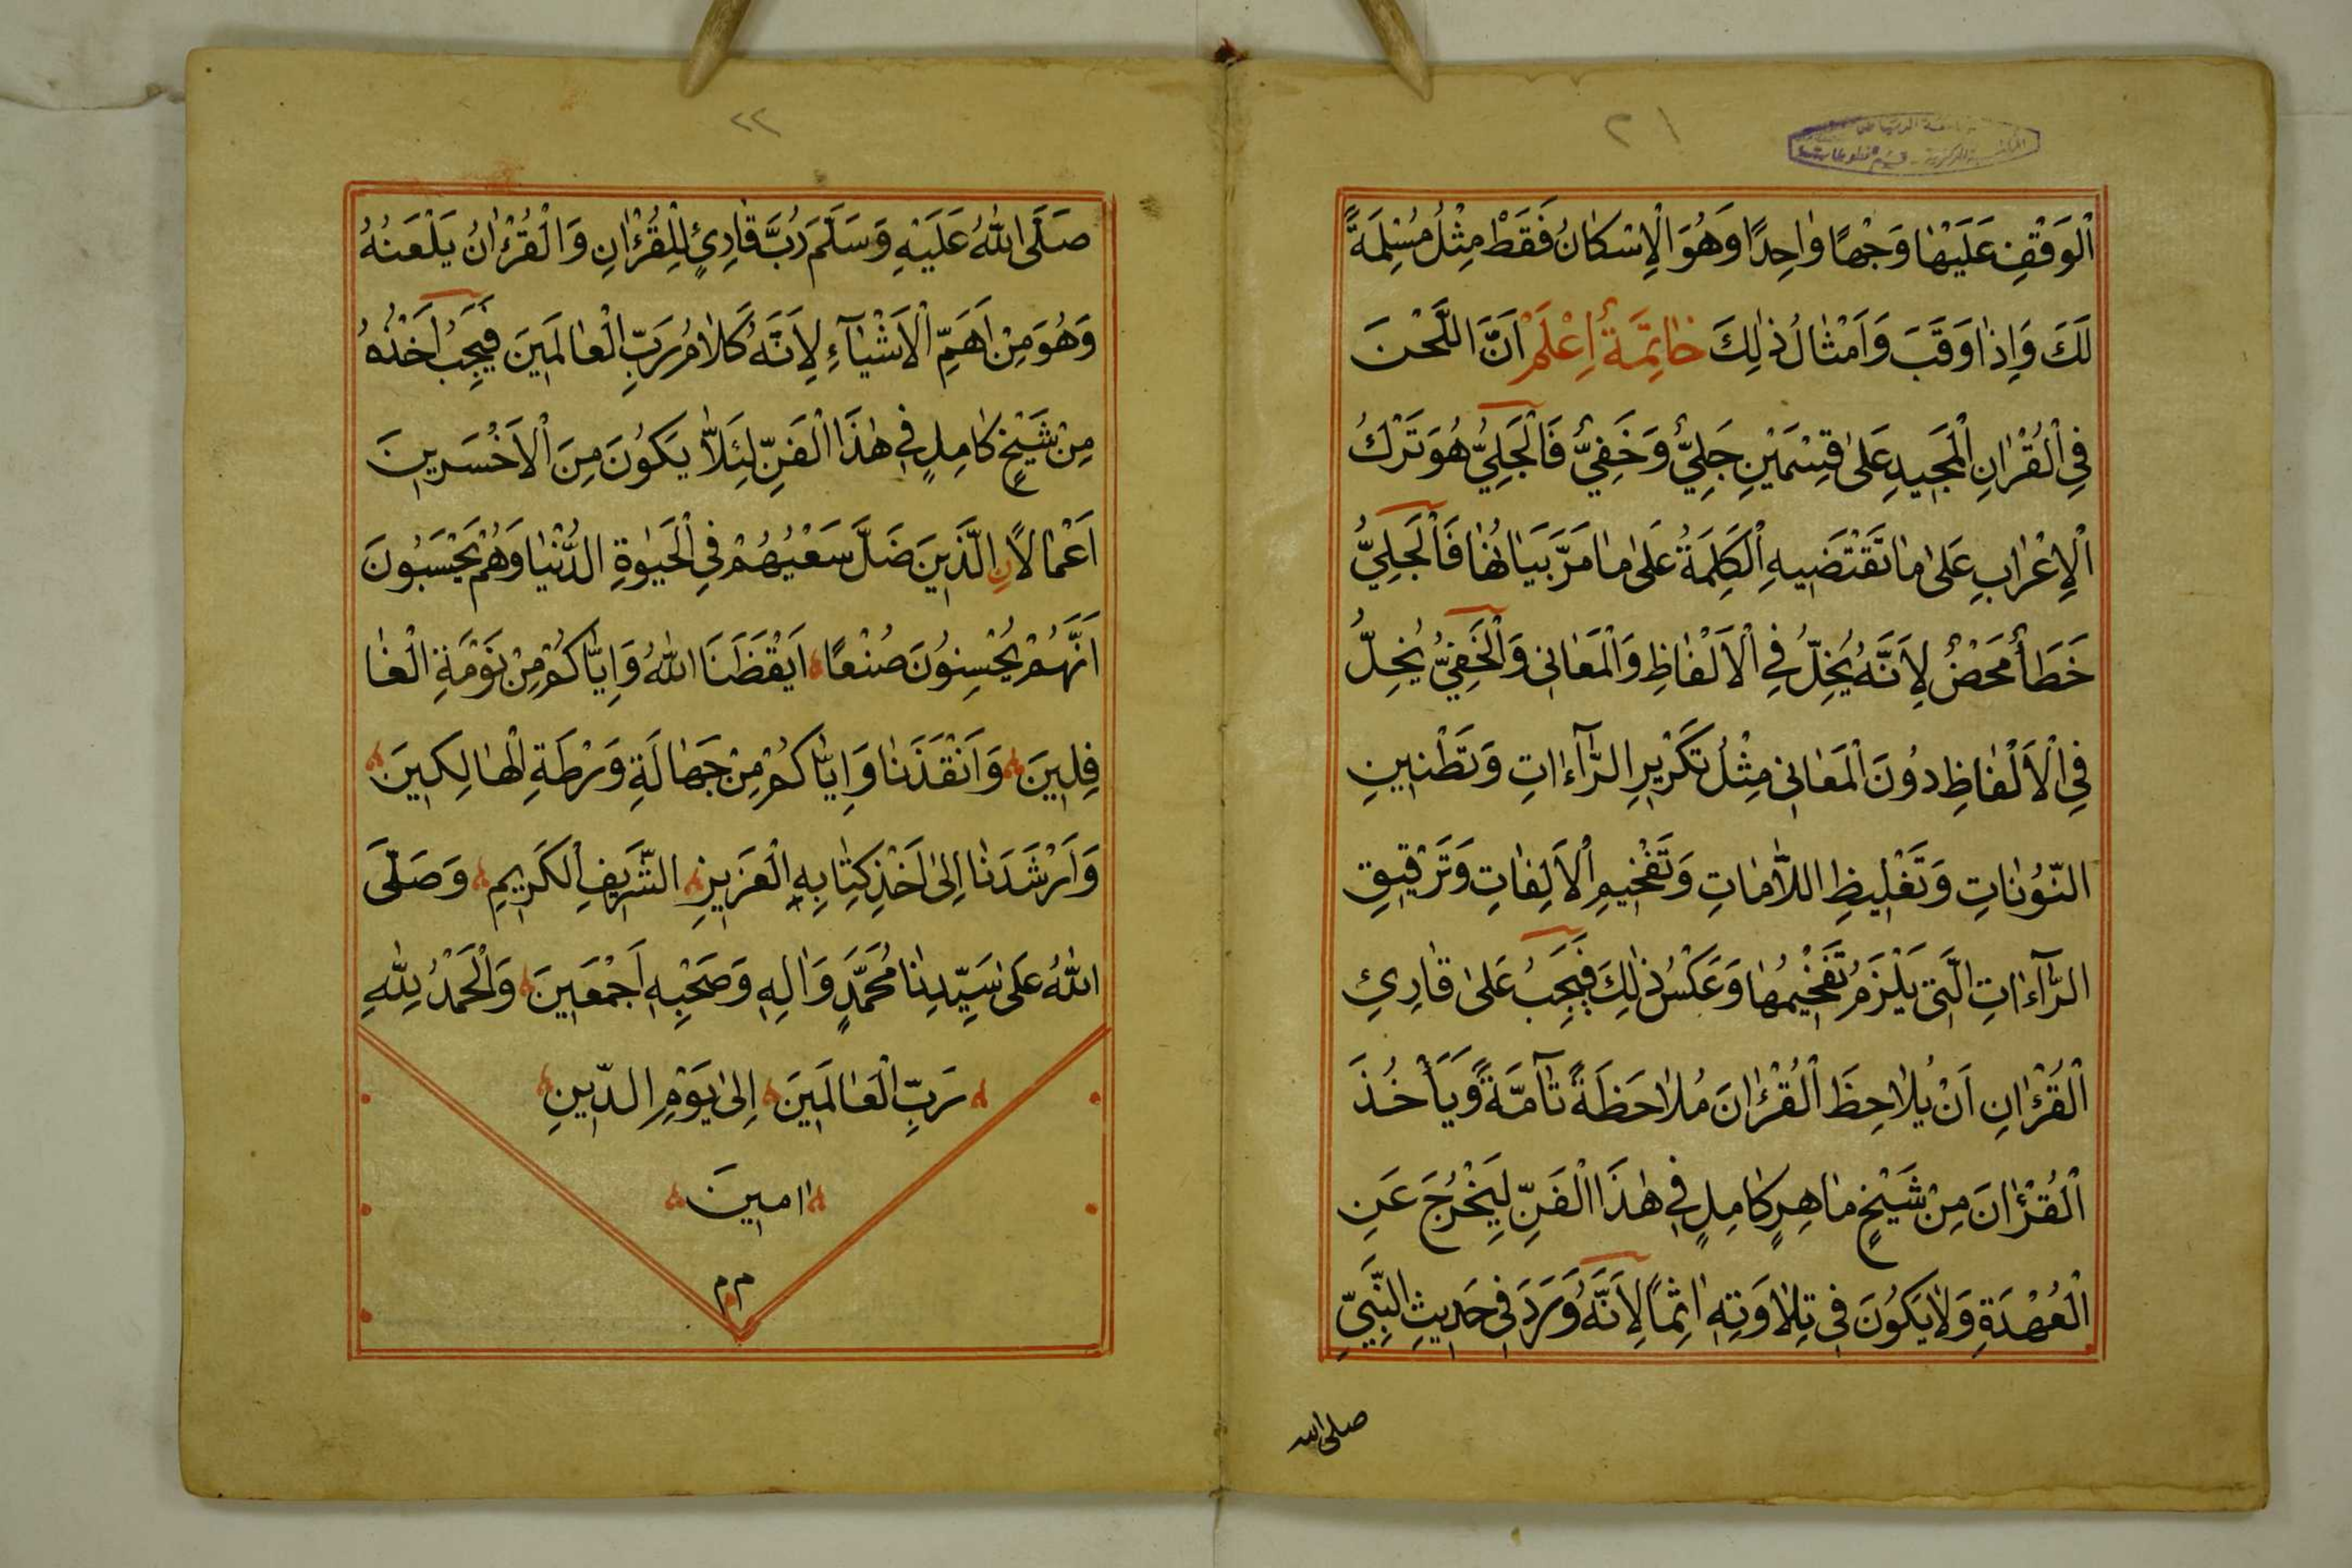 ٢١
جامعة الرياض
المكتبة المركزية - قسم المخطوطات
اَلْوَقْفِ عَلَيْهَا وَجْهًا وَاحِدًا وَهُوَ الْاِسْكَانُ فَقَطْ مِثْلُ مُسْلِمَةً
لَكَ وَاِذَا وَقَبَ وَاَمْثَالُ ذٰلِكَ خَاتِمَةٌ اِعْلَمْ اَنَّ اللَّحْنَ
فِي الْقُرْاٰنِ الْمَجِيدِ عَلٰى قِسْمَيْنِ جَلِيٌّ وَخَفِيٌّ فَالْجَلِيُّ هُوَ تَرْكُ
الْاِعْرَابِ عَلٰى مَا تَقْتَضِيهِ الْكَلِمَةُ عَلٰى مَا مَرَّ بَيَانُهَا فَالْجَلِيُّ
خَطَأٌ مَحْضٌ لِاَنَّهُ يُخِلُّ فِي الْاَلْفَاظِ وَالْمَعَانِي وَالْخَفِيُّ يُخِلُّ
فِي الْاَلْفَاظِ دُونَ الْمَعَانِي مِثْلُ تَكْرِيرِ الرَّآءَاتِ وَتَطْنِينِ
النُّونَاتِ وَتَغْلِيظِ اللَّامَاتِ وَتَفْخِيمِ الْاَلِفَاتِ وَتَرْقِيقِ
الرَّآءَاتِ الَّتِي يَلْزَمُ تَفْخِيمُهَا وَعَكْسُ ذٰلِكَ فَيَجِبُ عَلٰى قَارِئِ
الْقُرْءَانِ اَنْ يُلَاحِظَ الْقُرْءَانَ مُلَاحَظَةً تَآمَّةً وَيَأْخُذَ
الْقُرْءَانَ مِنْ شَيْخٍ مَاهِرٍ كَامِلٍ فِي هٰذَا الْفَنِّ لِيَخْرُجَ عَنِ
الْعُهْدَةِ وَلَا يَكُونَ فِي تِلَاوَتِهِ اٰثِمًا لِاَنَّهُ وَرَدَ فِي حَدِيثِ النَّبِيِّ
صلى الله
٢٢
صَلَّى اللّٰهُ عَلَيْهِ وَسَلَّمَ رُبَّ قَارِئٍ لِلْقُرْءَانِ وَالْقُرْءَانُ يَلْعَنُهُ
وَهُوَ مِنْ اَهَمِّ الْاَشْيَآءِ لِاَنَّهُ كَلَامُ رَبِّ الْعَالَمِينَ فَيَجِبُ اَخْذُهُ
مِنْ شَيْخٍ كَامِلٍ فِي هٰذَا الْفَنِّ لِئَلَّا يَكُونَ مِنَ الْاَخْسَرِينَ
اَعْمَالًا نِ الَّذِينَ ضَلَّ سَعْيُهُمْ فِي الْحَيٰوةِ الدُّنْيَا وَهُمْ يَحْسَبُونَ
اَنَّهُمْ يُحْسِنُونَ صُنْعًا اَيْقَظَنَا اللّٰهُ وَاِيَّاكُمْ مِنْ نَوْمَةِ الْغَا
فِلِينَ وَاَنْقَذَنَا وَاِيَّاكُمْ مِنْ جَهَالَةِ وَرْطَةِ الْهَالِكِينَ
وَاَرْشَدَنَا اِلٰى اَخْذِ كِتَابِهِ الْعَزِيزِ الشَّرِيفِ الْكَرِيمِ وَصَلَّى
اللّٰهُ عَلٰى سَيِّدِنَا مُحَمَّدٍ وَاٰلِهِ وَصَحْبِهِ اَجْمَعِينَ وَالْحَمْدُ لِلّٰهِ
رَبِّ الْعَالَمِينَ اِلٰى يَوْمِ الدِّينِ
اٰمِينَ
م م